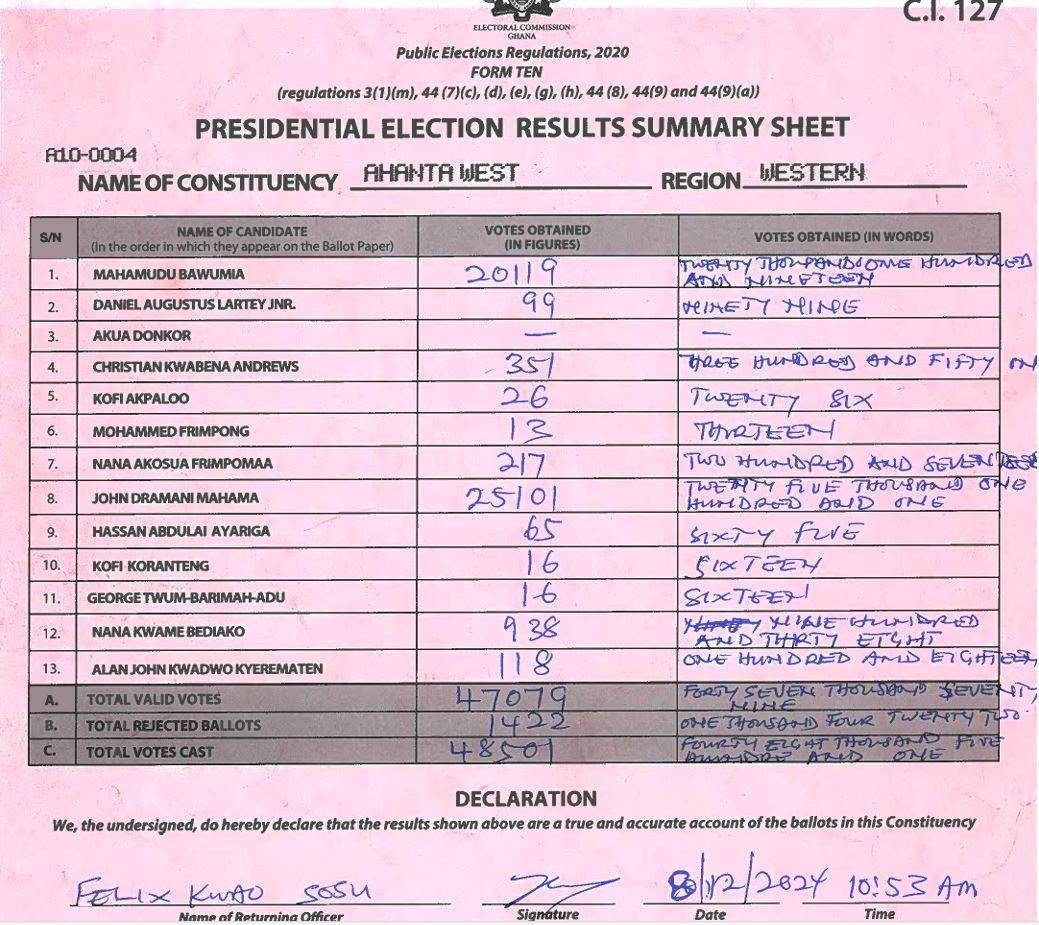 C.I. 127
ELECTORAL COMMISSION
GHANA
Public Elections Regulations, 2020
FORM TEN
(regulations 3(1)(m), 44 (7)(c), (d), (e), (g), (h), 44 (8), 44(9) and 44(9)(a))
PRESIDENTIAL ELECTION RESULTS SUMMARY SHEET
A10-0004
NAME OF CONSTITUENCY AHANTA WEST REGION WESTERN
S/N NAME OF CANDIDATE (In the order in which they appear on the Ballot Paper) VOTES OBTAINED (IN FIGURES) VOTES OBTAINED (IN WORDS)
1. MAHAMUDU BAWUMIA 20119 TWENTY THOUSAND ONE HUNDRED AND NINETEEN
2. DANIEL AUGUSTUS LARTEY JNR. 99 NINETY NINE
3. AKUA DONKOR — —
4. CHRISTIAN KWABENA ANDREWS 351 THREE HUNDRED AND FIFTY ON
5. KOFI AKPALOO 26 TWENTY SIX
6. MOHAMMED FRIMPONG 13 THIRTEEN
7. NANA AKOSUA FRIMPOMAA 217 TWO HUNDRED AND SEVENTEEN
8. JOHN DRAMANI MAHAMA 25101 TWENTY FIVE THOUSAND ONE HUNDRED AND ONE
9. HASSAN ABDULAI AYARIGA 65 SIXTY FIVE
10. KOFI KORANTENG 16 SIXTEEN
11. GEORGE TWUM-BARIMAH-ADU 16 SIXTEEN
12. NANA KWAME BEDIAKO 938 NINE HUNDRED AND THIRTY EIGHT
13. ALAN JOHN KWADWO KYEREMATEN 118 ONE HUNDRED AND EIGHTEEN
A. TOTAL VALID VOTES 47079 FORTY SEVEN THOUSAND SEVENTY NINE
B. TOTAL REJECTED BALLOTS 1422 ONE THOUSAND FOUR TWENTY TWO
C. TOTAL VOTES CAST 48501 FOURTY EIGHT THOUSAND FIVE HUNDRE AND ONE
DECLARATION
We, the undersigned, do hereby declare that the results shown above are a true and accurate account of the ballots in this Constituency
FELIX KWAO SOSU 8/12/2024 10:53 AM
Name of Returning Officer Signature Date Time